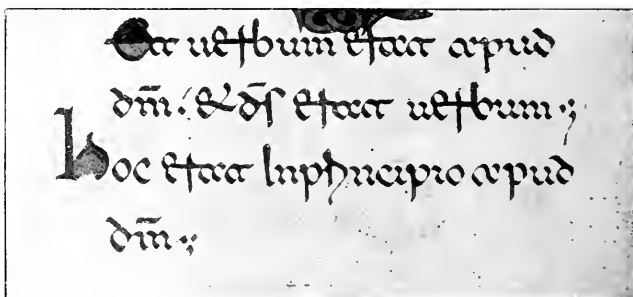 Et uerbum erat apud
dm̄. & d̄s erat uerbum;
hoc erat Inprincipio apud
dm̄;